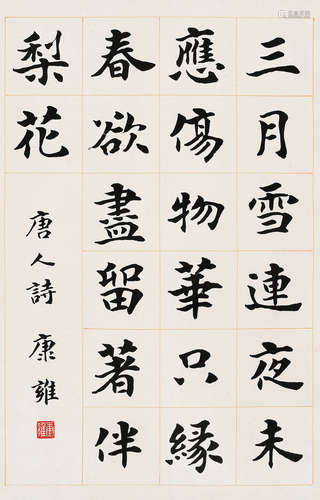 三月雪連夜未
應傷物華只緣
春欲盡留著伴
梨花
唐人詩 康雍